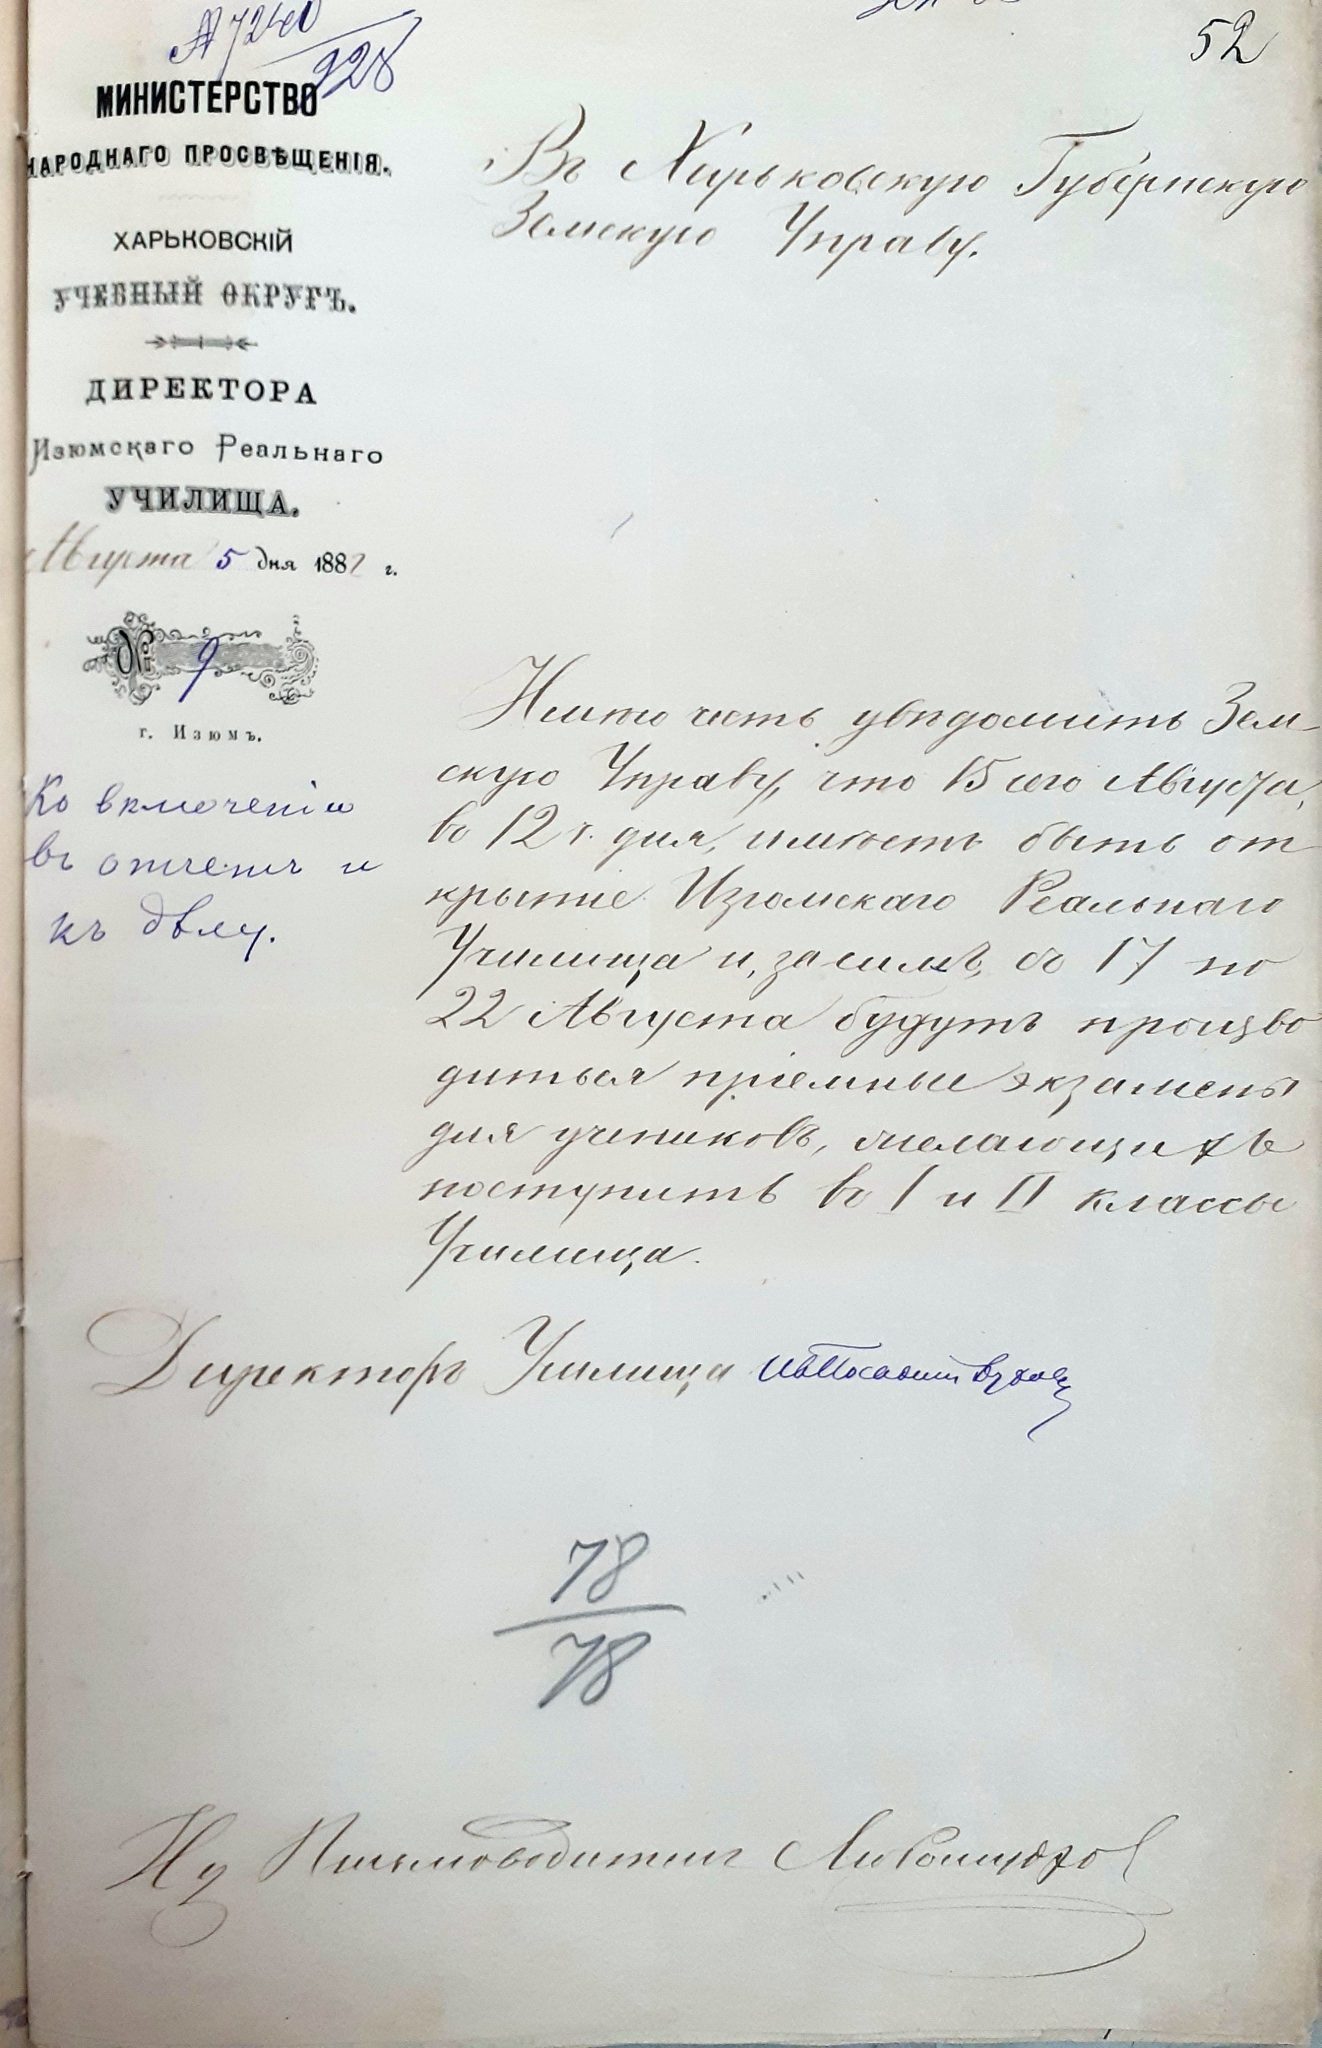 № 7240
928
52
МИНИСТЕРСТВО
НАРОДНАГО ПРОСВѢЩЕНІЯ.
ХАРЬКОВСКІЙ
УЧЕБНЫЙ ОКРУГЪ.
ДИРЕКТОРА
Изюмскаго Реальнаго
УЧИЛИЩА.
Августа 5 дня 1882 г.
№ 9
г. Изюмъ.
Ко включенію
въ отчетъ и
къ дѣлу.
Въ Харьковскую Губернскую
Земскую Управу.
Имѣю честь увѣдомить Зем-
скую Управу, что 15 сего Августа,
въ 12 ч. дня, имѣетъ быть от
крытіе Изюмскаго Реальнаго
Училища и, засимъ, съ 17 по
22 Августа будутъ произво
диться пріемные экзамены
для учениковъ, желающихъ
поступить въ I и II классы
Училища.
Директоръ Училища
78
78
Ид Письмоводителя